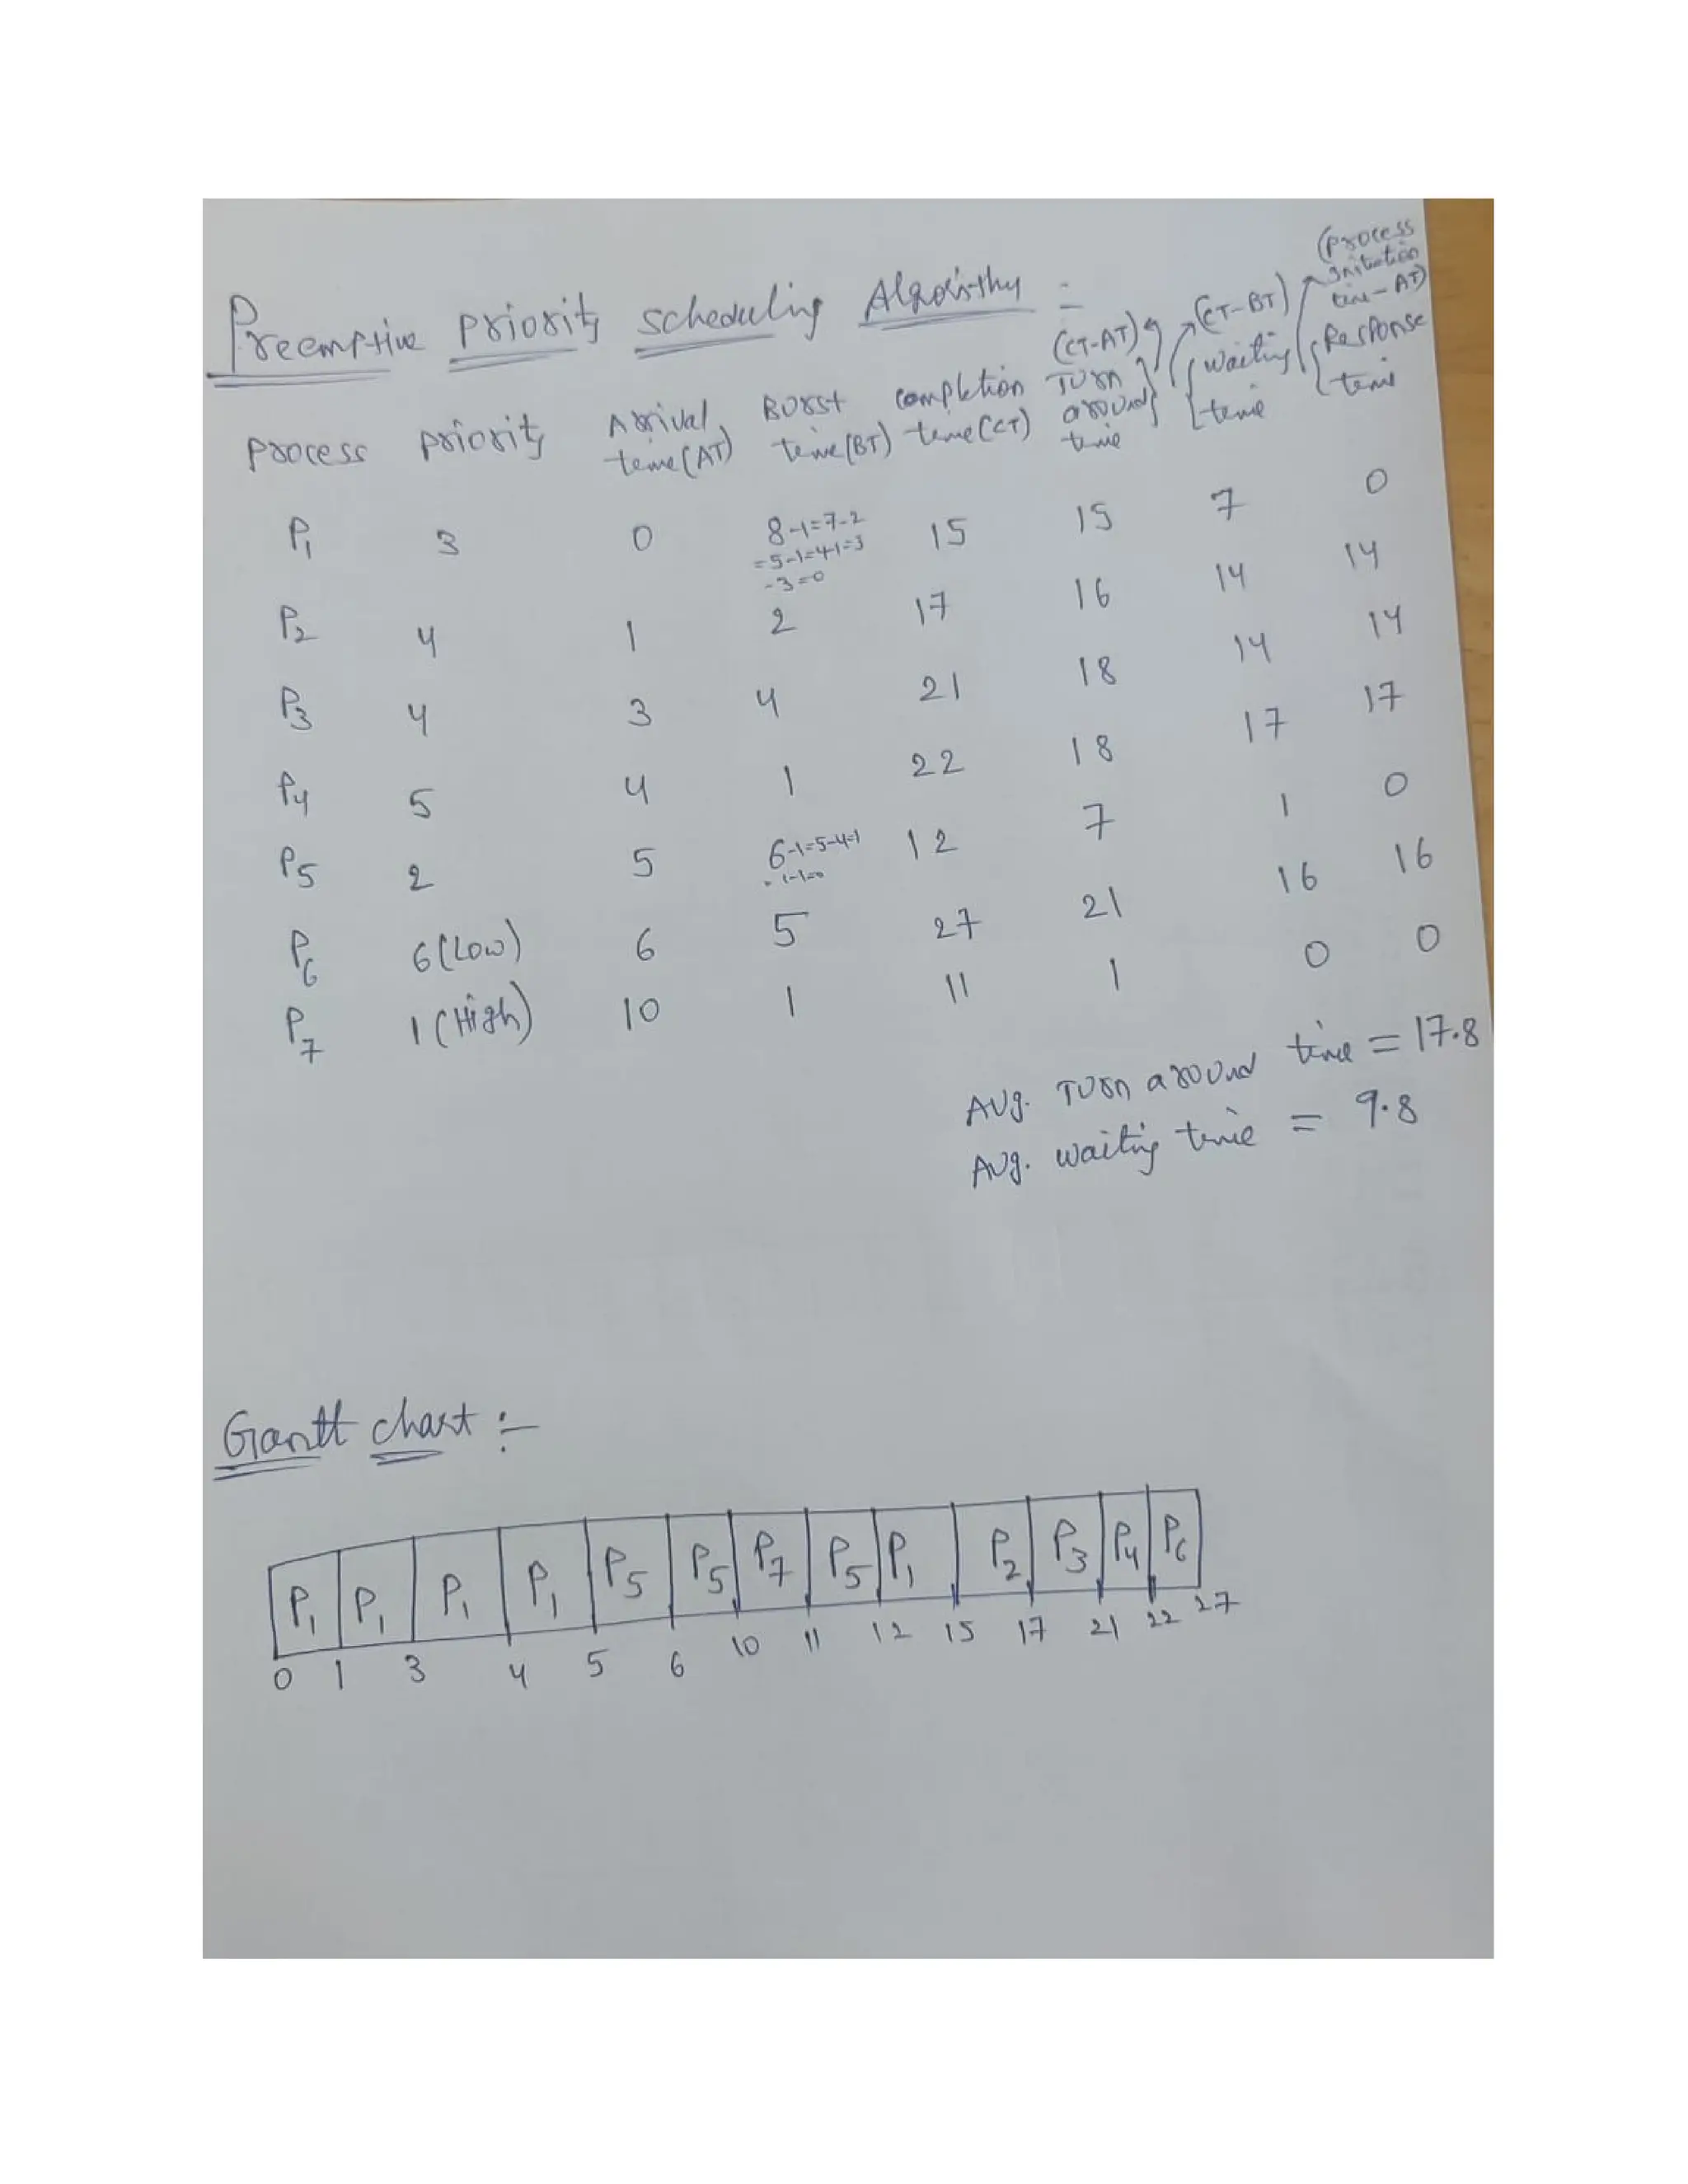 Preemptive Priority scheduling Algorithm :-
Process Priority Arrival time (AT) Burst time (BT) completion time (CT) (CT-AT) Turn around time (CT-BT) waiting time (Process Initiation time - AT) Response time
P1 3 0 8-1=7-2 =5-1=4-1=3 -3=0 15 15 7 0
P2 4 1 2 17 16 14 14
P3 4 3 4 21 18 14 14
P4 5 4 1 22 18 17 17
P5 2 5 6-1=5-4=1 1-1=0 12 7 1 0
P6 6 (Low) 6 5 27 21 16 16
P7 1 (High) 10 1 11 1 0 0
Avg. Turn around time = 17.8
Avg. waiting time = 9.8
Gantt chart :-
P1 P1 P1 P1 P5 P5 P7 P5 P1 P2 P3 P4 P6
0 1 3 4 5 6 10 11 12 15 17 21 22 27